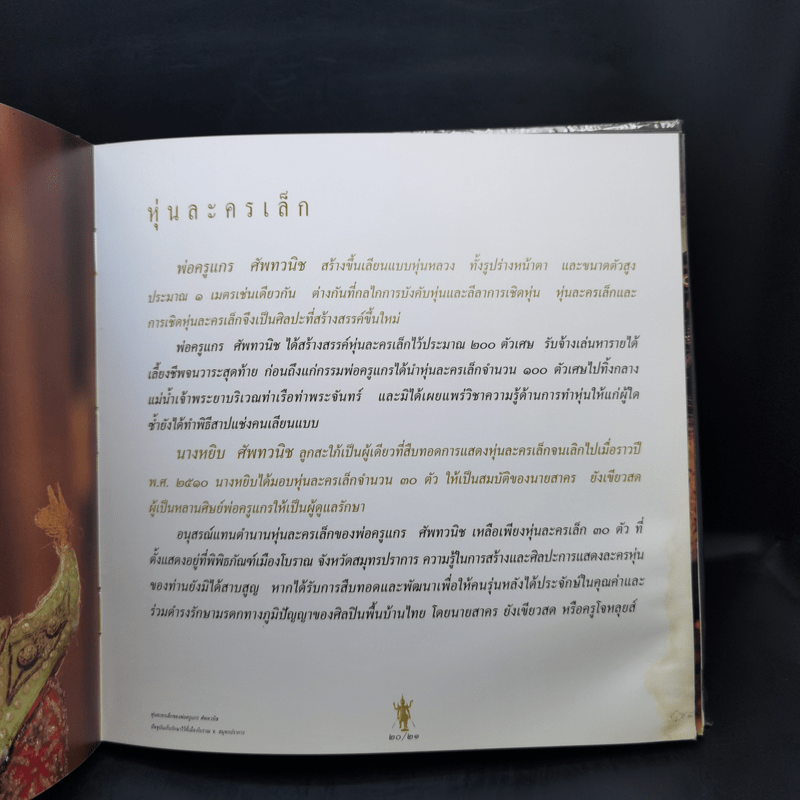 หุ่นละครเล็ก
พ่อครูแกร ศัพทวนิช สร้างขึ้นเลียนแบบหุ่นหลวง ทั้งรูปร่างหน้าตา และขนาดตัวสูง
ประมาณ ๑ เมตรเช่นเดียวกัน ต่างกันที่กลไกการบังคับหุ่นและลีลาการเชิดหุ่น หุ่นละครเล็กและ
การเชิดหุ่นละครเล็กจึงเป็นศิลปะที่สร้างสรรค์ขึ้นใหม่
พ่อครูแกร ศัพทวนิช ได้สร้างสรรค์หุ่นละครเล็กไว้ประมาณ ๒๐๐ ตัวเศษ รับจ้างเล่นหารายได้
เลี้ยงชีพจนวาระสุดท้าย ก่อนถึงแก่กรรมพ่อครูแกรได้นำหุ่นละครเล็กจำนวน ๑๐๐ ตัวเศษไปทิ้งกลาง
แม่น้ำเจ้าพระยาบริเวณท่าเรือท่าพระจันทร์ และมิได้เผยแพร่วิชาความรู้ด้านการทำหุ่นให้แก่ผู้ใด
ซ้ำยังได้ทำพิธีสาปแช่งคนเลียนแบบ
นางหยิบ ศัพทวนิช ลูกสะใภ้เป็นผู้เดียวที่สืบทอดการแสดงหุ่นละครเล็กจนเลิกไปเมื่อราวปี
พ.ศ. ๒๕๑๐ นางหยิบได้มอบหุ่นละครเล็กจำนวน ๓๐ ตัว ให้เป็นสมบัติของนายสาคร ยังเขียวสด
ผู้เป็นหลานศิษย์พ่อครูแกรให้เป็นผู้ดูแลรักษา
อนุสรณ์แทนตำนานหุ่นละครเล็กของพ่อครูแกร ศัพทวนิช เหลือเพียงหุ่นละครเล็ก ๓๐ ตัว ที่
ตั้งแสดงอยู่ที่พิพิธภัณฑ์เมืองโบราณ จังหวัดสมุทรปราการ ความรู้ในการสร้างและศิลปะการแสดงละครหุ่น
ของท่านยังมิได้สาบสูญ หากได้รับการสืบทอดและพัฒนาเพื่อให้คนรุ่นหลังได้ประจักษ์ในคุณค่าและ
ร่วมดำรงรักษามรดกทางภูมิปัญญาของศิลปินพื้นบ้านไทย โดยนายสาคร ยังเขียวสด หรือครูโจหลุยส์
หุ่นละครเล็กของพ่อครูแกร ศัพทวนิช
ปัจจุบันเก็บรักษาไว้ที่เมืองโบราณ จ. สมุทรปราการ
๒๐/๒๑